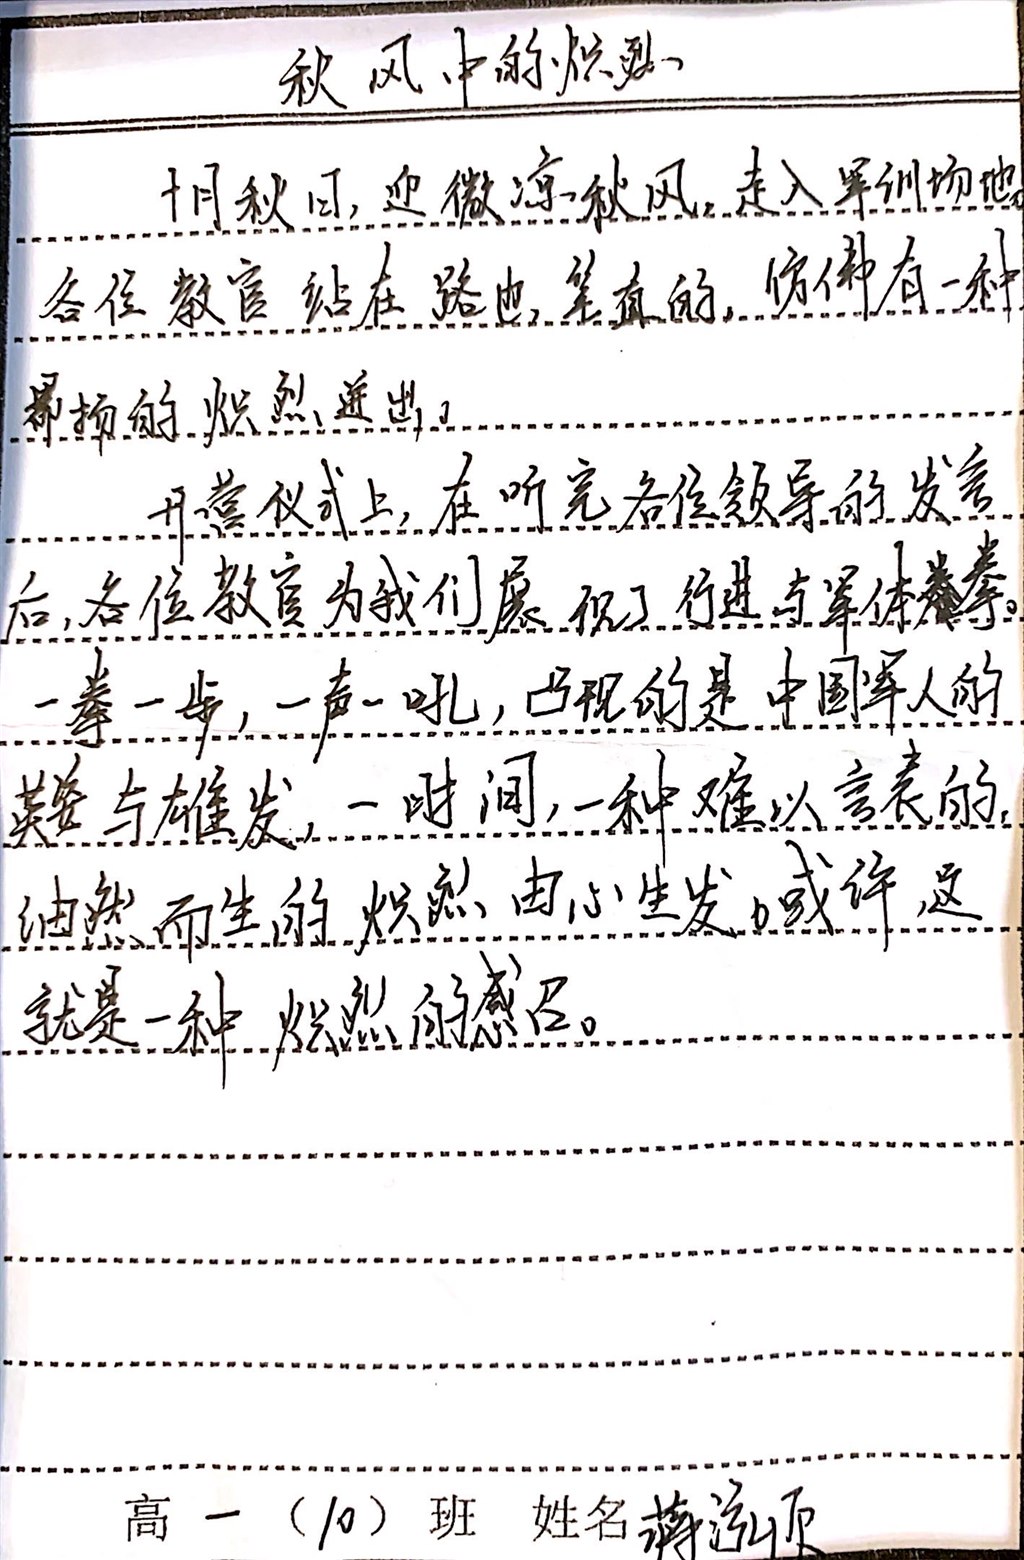 秋风中的炽烈
十月秋日，迎微凉秋风，走入军训场地。
各位教官站在路边，笔直的，仿佛有一种
昂扬的炽烈迸出。
开营仪式上，在听完各位领导的发言
后，各位教官为我们展现了行进与军体拳。
一拳一步，一声一吼，凸现的是中国军人的
英姿与雄发，一时间，一种难以言表的，
油然而生的炽烈由心生发。或许，这
就是一种炽烈的感召。
高一（10）班 姓名蒋